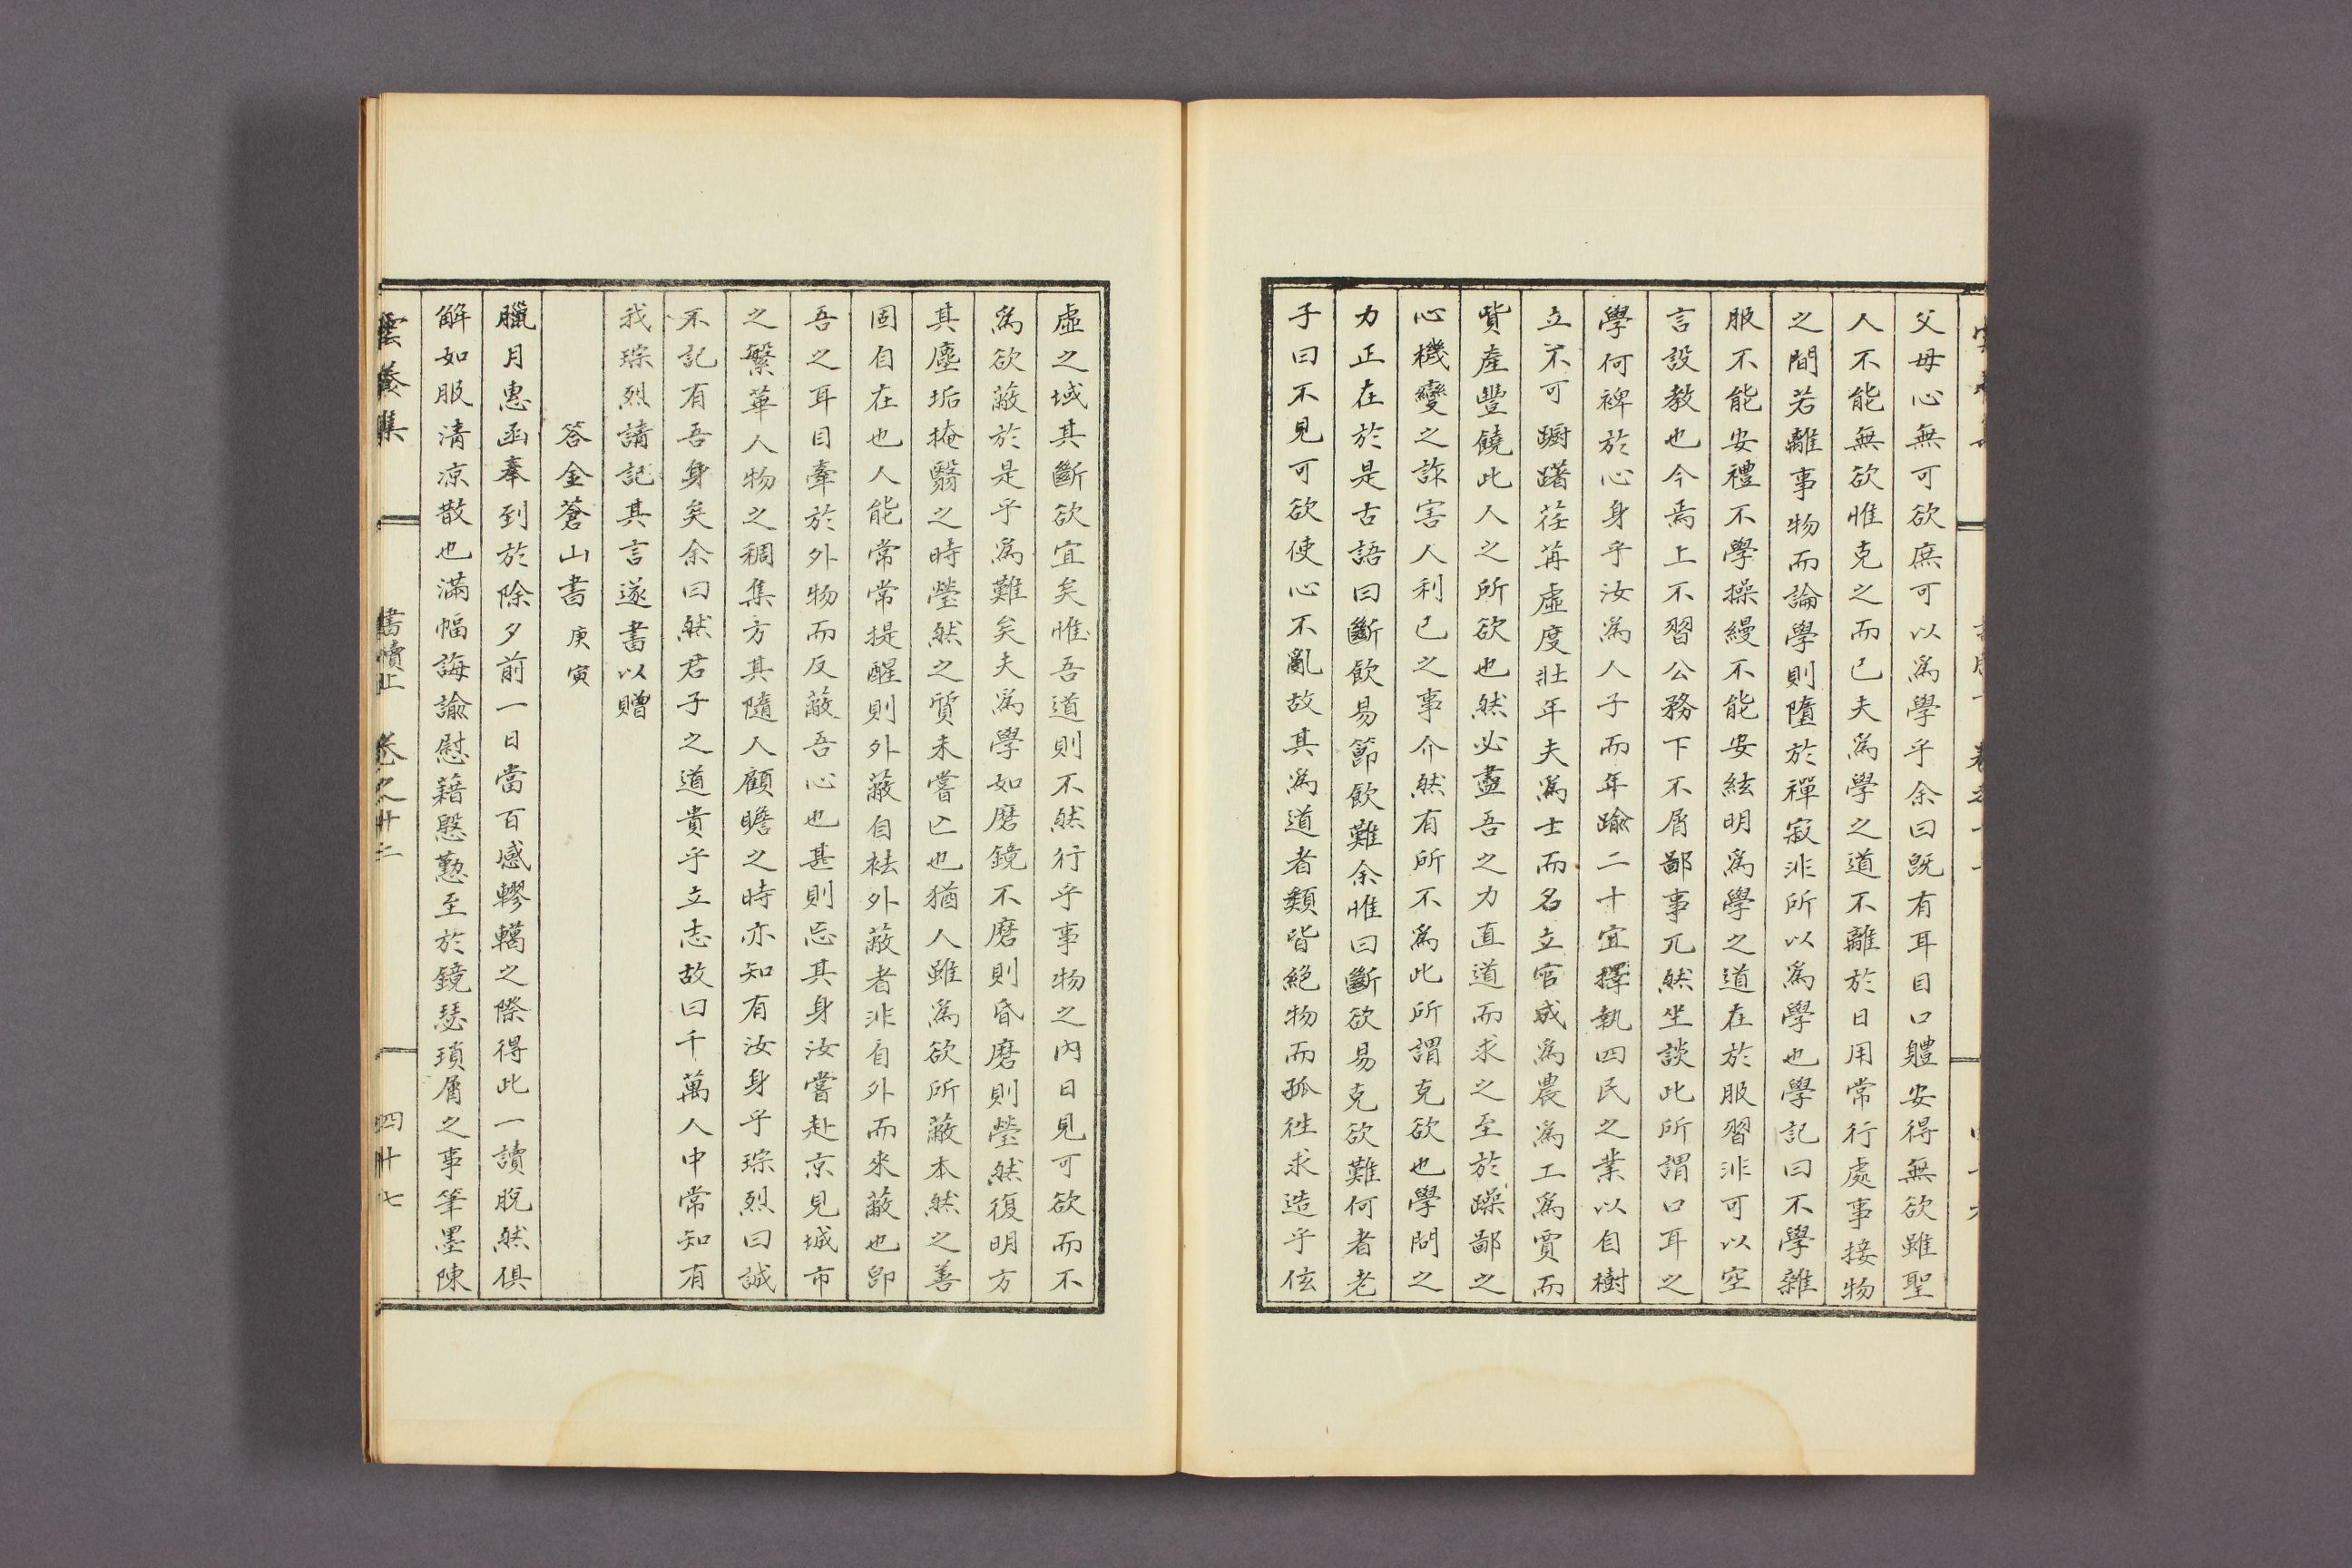 父母心無可欲庶可以爲學乎余曰旣有耳目口軆安得無欲雖聖
人不能無欲惟克之而已夫爲學之道不離於日用常行處事接物
之間若離事物而論學則墮於禪寂非所以爲學也學記曰不學雜
服不能安禮不學操縵不能安絃明爲學之道在於服習非可以空
言設教也今焉上不習公務下不屑鄙事兀然坐談此所謂口耳之
學何裨於心身乎汝爲人子而年踰二十宜擇執四民之業以自樹
立不可躕躇荏苒虛度壯年夫爲士而名立官成爲農爲工爲賈而
貲産豐饒此人之所欲也然必盡吾之力直道而求之至於躁鄙之
心機變之詐害人利己之事介然有所不爲此所謂克欲也學問之
力正在於是古語曰斷飮易節飮難余惟曰斷欲易克欲難何者老
子曰不見可欲使心不亂故其爲道者類皆絶物而孤徃求造乎伭
虛之域其斷欲宜矣惟吾道則不然行乎事物之內日見可欲而不
爲欲蔽於是乎爲難矣夫爲學如磨鏡不磨則昏磨則瑩然復明方
其塵垢掩翳之時瑩然之質未嘗亡也猶人雖爲欲所蔽本然之善
固自在也人能常常提醒則外蔽自袪外蔽者非自外而來蔽也卽
吾之耳目牽於外物而反蔽吾心也甚則忘其身汝嘗赴京見城市
之繁華人物之稠集方其隨人顧瞻之時亦知有汝身乎琮烈曰誠
不記有吾身矣余曰然君子之道貴乎立志故曰千萬人中常知有
我琮烈請記其言遂書以贈
答金蒼山書 庚寅
臘月惠函奉到於除夕前一日當百感轇轕之際得此一讀脫然俱
解如服淸凉散也滿幅誨諭慰藉慇懃至於鏡瑟瑣屑之事筆墨陳
雲養集 書牘上 卷之十二 四十七